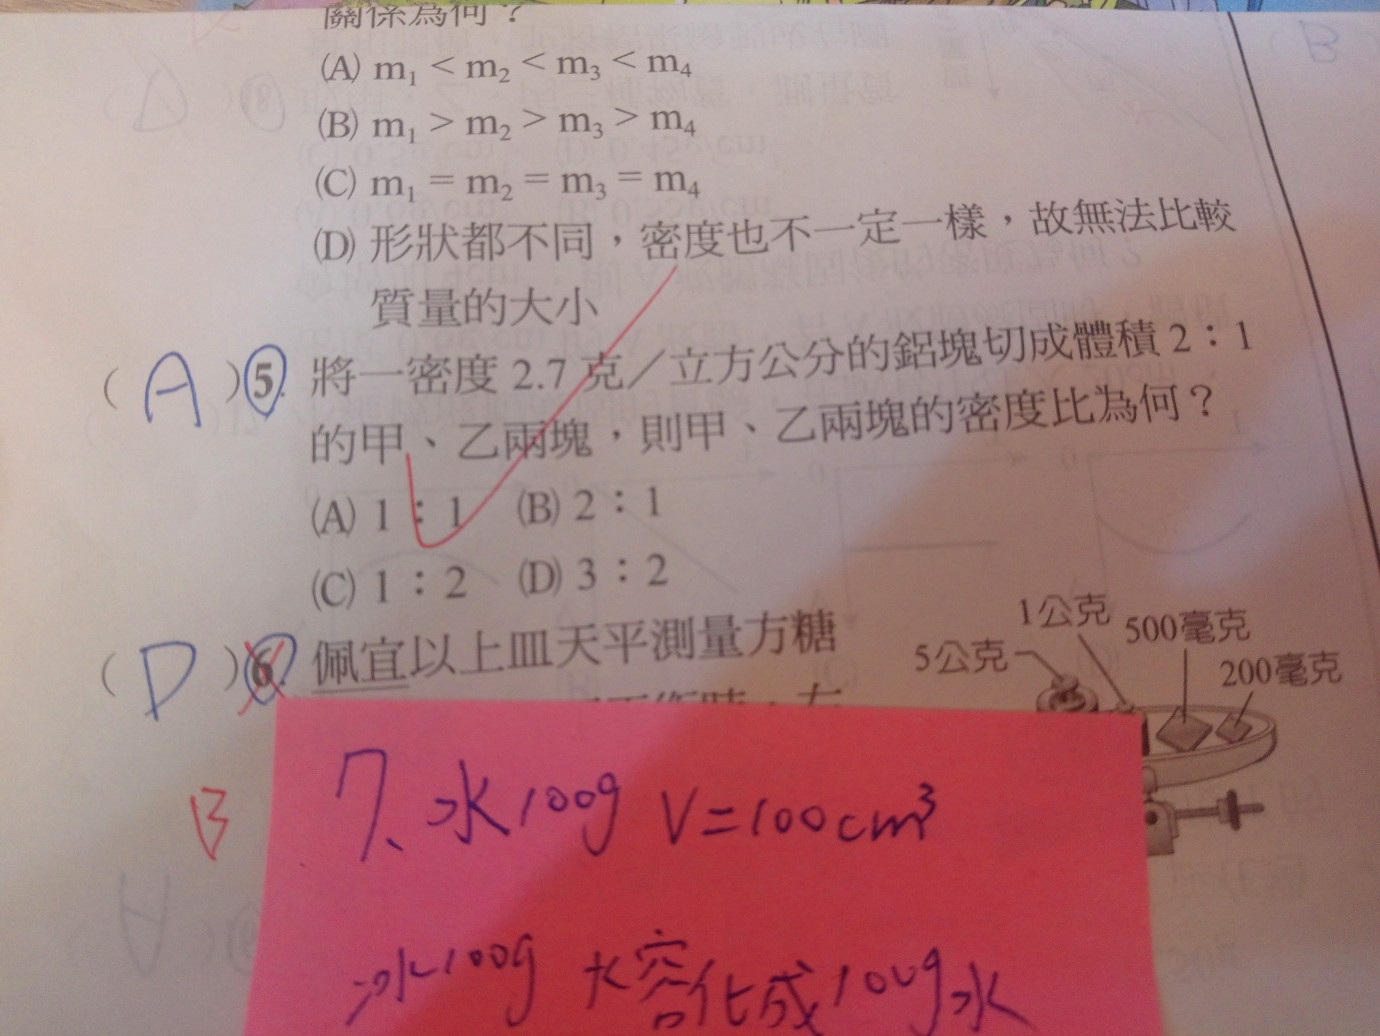 關係為何？
(A) m₁ < m₂ < m₃ < m₄
(B) m₁ > m₂ > m₃ > m₄
(C) m₁ = m₂ = m₃ = m₄
(D) 形狀都不同，密度也不一定一樣，故無法比較
質量的大小
( A ) 5. 將一密度 2.7 克／立方公分的鋁塊切成體積 2：1
的甲、乙兩塊，則甲、乙兩塊的密度比為何？
(A) 1：1 (B) 2：1
(C) 1：2 (D) 3：2
( D ) 6. 佩宜以上皿天平測量方糖
5公克 1公克 500毫克 200毫克
B
7、水100g V=100cm³
冰100g 熔化成100g水